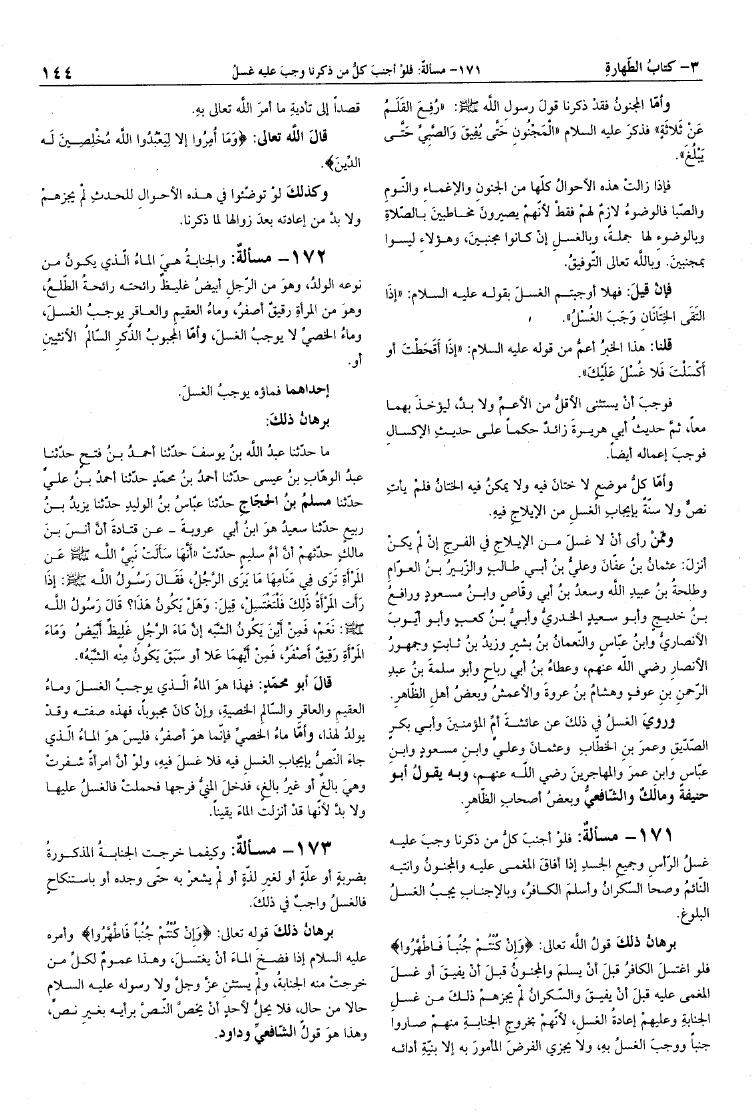 ٣- كتابُ الطَّهارةِ
١٧١- مسألةٌ: فلوْ أجنبَ كلُّ من ذكرنا وجبَ عليه غسلُ
١٤٤
وأمّا المجنونُ فقدْ ذكرنا قولَ رسول اللّه ﷺ: «رُفِعَ القَلَمُ
عَنْ ثَلاثَةٍ» فذكرَ عليه السلام «الْمَجْنُونِ حَتَّى يُفِيقَ وَالصَّبِيِّ حَتَّى
يَبْلُغَ».
فإذا زالتْ هذه الأحوالُ كلّها من الجنونِ والإغماءِ والنّومِ
والصِّبا فالوضوءُ لازمٌ لهمْ فقطْ لأنّهمْ يصيرونَ مخاطبينَ بالصّلاةِ
وبالوضوءِ لها جملةً، وبالغسلِ إنْ كانوا مجنبينَ، وهؤلاءِ ليسوا
بمجنبينَ. وباللّه تعالى التّوفيقُ.
فإنْ قيلَ: فهلا أوجبتم الغسلَ بقولهِ عليه السلام: «إذَا
التَقَى الخِتَانَانِ وَجَبَ الغُسْلُ».
قلنا: هذا الخبرُ أعمُّ من قوله عليه السلام: «إذَا أَقْحَطْتَ أو
أَكْسَلْتَ فَلا غُسْلَ عَلَيْكَ».
فوجبَ أنْ يستثنى الأقلُّ من الأعمِّ ولا بدَّ، ليؤخذَ بهما
معاً، ثمَّ حديثُ أبي هريرةَ زائدٌ حكماً على حديثِ الإكسالِ
فوجبَ إعمالهُ أيضاً.
وأمّا كلُّ موضعٍ لا ختانَ فيه ولا يمكنُ فيه الختانُ فلمْ يأتِ
نصٌّ ولا سنّةٌ بإيجابِ الغسلِ من الإيلاجِ فيهِ.
وممّنْ رأى أنْ لا غسلَ من الإيلاجِ في الفرجِ إنْ لمْ يكنْ
أنزلَ: عثمانُ بنُ عفّانَ وعليُّ بنُ أبي طالبٍ والزّبيرُ بنُ العوّامِ
وطلحةُ بنُ عبيدِ اللّه وسعدُ بنُ أبي وقّاصٍ وابنُ مسعودٍ ورافعُ
بنُ خديجٍ وأبو سعيدٍ الخدريُّ وأبيُّ بنُ كعبٍ وأبو أيّوبَ
الأنصاريُّ وابنُ عبّاسٍ والنّعمانُ بنُ بشيرٍ وزيدُ بنُ ثابتٍ وجمهورُ
الأنصارِ رضي اللّه عنهم، وعطاءُ بنُ أبي رباحٍ وأبو سلمةَ بنُ عبدِ
الرّحمنِ بنِ عوفٍ وهشامُ بنُ عروةَ والأعمشُ وبعضُ أهلِ الظّاهرِ.
ورويَ الغسلُ في ذلكَ عن عائشةَ أمِّ المؤمنينَ وأبي بكرٍ
الصّدّيقِ وعمرَ بنِ الخطّابِ وعثمانَ وعليٍّ وابنِ مسعودٍ وابنِ
عبّاسٍ وابنِ عمرَ والمهاجرينَ رضي اللّه عنهم، وبه يقولُ أبو
حنيفةَ ومالكٌ والشّافعيُّ وبعضُ أصحابِ الظّاهرِ.
١٧١- مسألةٌ: فلوْ أجنبَ كلُّ من ذكرنا وجبَ عليه
غسلُ الرّأسِ وجميعِ الجسدِ إذا أفاقَ المغمى عليه والمجنونُ وانتبه
النّائمُ وصحا السّكرانُ وأسلمَ الكافرُ، وبالإجنابِ يجبُ الغسلُ
البلوغَ.
برهانُ ذلكَ قولُ اللّه تعالى: ﴿وَإِنْ كُنْتُمْ جُنُباً فَاطَّهَّرُوا﴾
فلو اغتسلَ الكافرُ قبلَ أنْ يسلمَ والمجنونُ قبلَ أنْ يفيقَ أو غسلَ
المغمى عليه قبلَ أنْ يفيقَ والسّكرانُ لمْ يجزهمْ ذلكَ من غسلِ
الجنابةِ وعليهمْ إعادةُ الغسلِ، لأنّهمْ بخروجِ الجنابةِ منهمْ صاروا
جنباً ووجبَ الغسلُ بهِ، ولا يجزي الفرضُ المأمورُ به إلا بنيّةِ أدائه
قصداً إلى تأديةِ ما أمرَ اللّه تعالى بهِ.
قالَ اللّه تعالى: ﴿وَمَا أُمِرُوا إلا لِيَعْبُدُوا اللّه مُخْلِصِينَ لَه
الدِّينَ﴾.
وكذلكَ لوْ توضّئوا في هذه الأحوالِ للحدثِ لمْ يجزهمْ
ولا بدَّ من إعادته بعدَ زوالها لما ذكرنا.
١٧٢- مسألةٌ: والجنابةُ هيَ الماءُ الّذي يكونُ من
نوعه الولدُ، وهوَ من الرّجلِ أبيضُ غليظٌ رائحته رائحةُ الطّلعِ،
وهوَ من المرأةِ رقيقٌ أصفرُ، وماءُ العقيمِ والعاقرِ يوجبُ الغسلَ،
وماءُ الخصيِّ لا يوجبُ الغسلَ، وأمّا المجبوبُ الذّكرِ السّالمُ الأنثيينِ
أو.
إحداهما فماؤه يوجبُ الغسلَ.
برهانُ ذلكَ:
ما حدّثنا عبدُ اللّه بنُ يوسفَ حدّثنا أحمدُ بنُ فتحٍ حدّثنا
عبدُ الوهّابِ بنُ عيسى حدّثنا أحمدُ بنُ محمّدٍ حدّثنا أحمدُ بنُ عليٍّ
حدّثنا مسلمُ بنُ الحجّاجِ حدّثنا عبّاسُ بنُ الوليدِ حدّثنا يزيدُ بنُ
ربيعٍ حدّثنا سعيدٌ هوَ ابنُ أبي عروبةَ - عن قتادةَ أنَّ أنسَ بنَ
مالكٍ حدّثهمْ أنَّ أمَّ سليمٍ حدّثتْ «أَنَّهَا سَأَلَتْ نَبِيَّ اللّه ﷺ عَنِ
المَرْأةِ تَرَى فِي مَنَامِهَا مَا يَرَى الرَّجُلُ، فَقَالَ رَسُولُ اللّه ﷺ: إذَا
رَأَت المَرْأةُ ذَلِكَ فَلْتَغْتَسِلْ، قِيلَ: وَهَلْ يَكُونُ هَذَا؟ قَالَ رَسُولُ اللّه
ﷺ: نَعَمْ، فَمِنْ أَيْنَ يَكُونُ الشَّبَهُ إنَّ مَاءَ الرَّجُلِ غَلِيظٌ أَبْيَضُ وَمَاءَ
المَرْأةِ رَقِيقٌ أَصْفَرُ، فَمِنْ أَيِّهِمَا عَلا أو سَبَقَ يَكُونُ مِنْه الشَّبَهُ».
قالَ أبو محمّدٍ: فهذا هوَ الماءُ الّذي يوجبُ الغسلَ وماءُ
العقيمِ والعاقرِ والسّالمِ الخصيةِ، وإنْ كانَ مجبوباً، فهذه صفته وقدْ
يولدُ لهذا، وأمَّا ماءُ الخصيِّ فإنّما هوَ أصفرُ، فليسَ هوَ الماءُ الّذي
جاءَ النّصُّ بإيجابِ الغسلِ فيه فلا غسلَ فيهِ، ولوْ أنَّ امرأةً شفرتْ
وهيَ بالغٌ أو غيرُ بالغٍ، فدخلَ المنيُّ فرجها فحملتْ فالغسلُ عليها
ولا بدَّ لأنّها قدْ أنزلت الماءَ يقيناً.
١٧٣- مسألةٌ: وكيفما خرجت الجنابةُ المذكورةُ
بضربةٍ أو علّةٍ أو لغيرِ لذّةٍ أو لمْ يشعرْ به حتّى وجده أو باستنكاحٍ
فالغسلُ واجبٌ في ذلكَ.
برهانُ ذلكَ قوله تعالى: ﴿وَإِنْ كُنْتُمْ جُنُباً فَاطَّهَّرُوا﴾ وأمره
عليه السلام إذا فضخَ الماءَ أنْ يغتسلَ، وهذا عمومٌ لكلِّ من
خرجتْ منه الجنابةُ، ولمْ يستثنِ عزَّ وجلَّ ولا رسوله عليه السلام
حالا من حالٍ، فلا يحلُّ لأحدٍ أنْ يخصَّ النّصَّ برأيه بغيرِ نصٍّ،
وهذا هوَ قولُ الشّافعيِّ وداود.